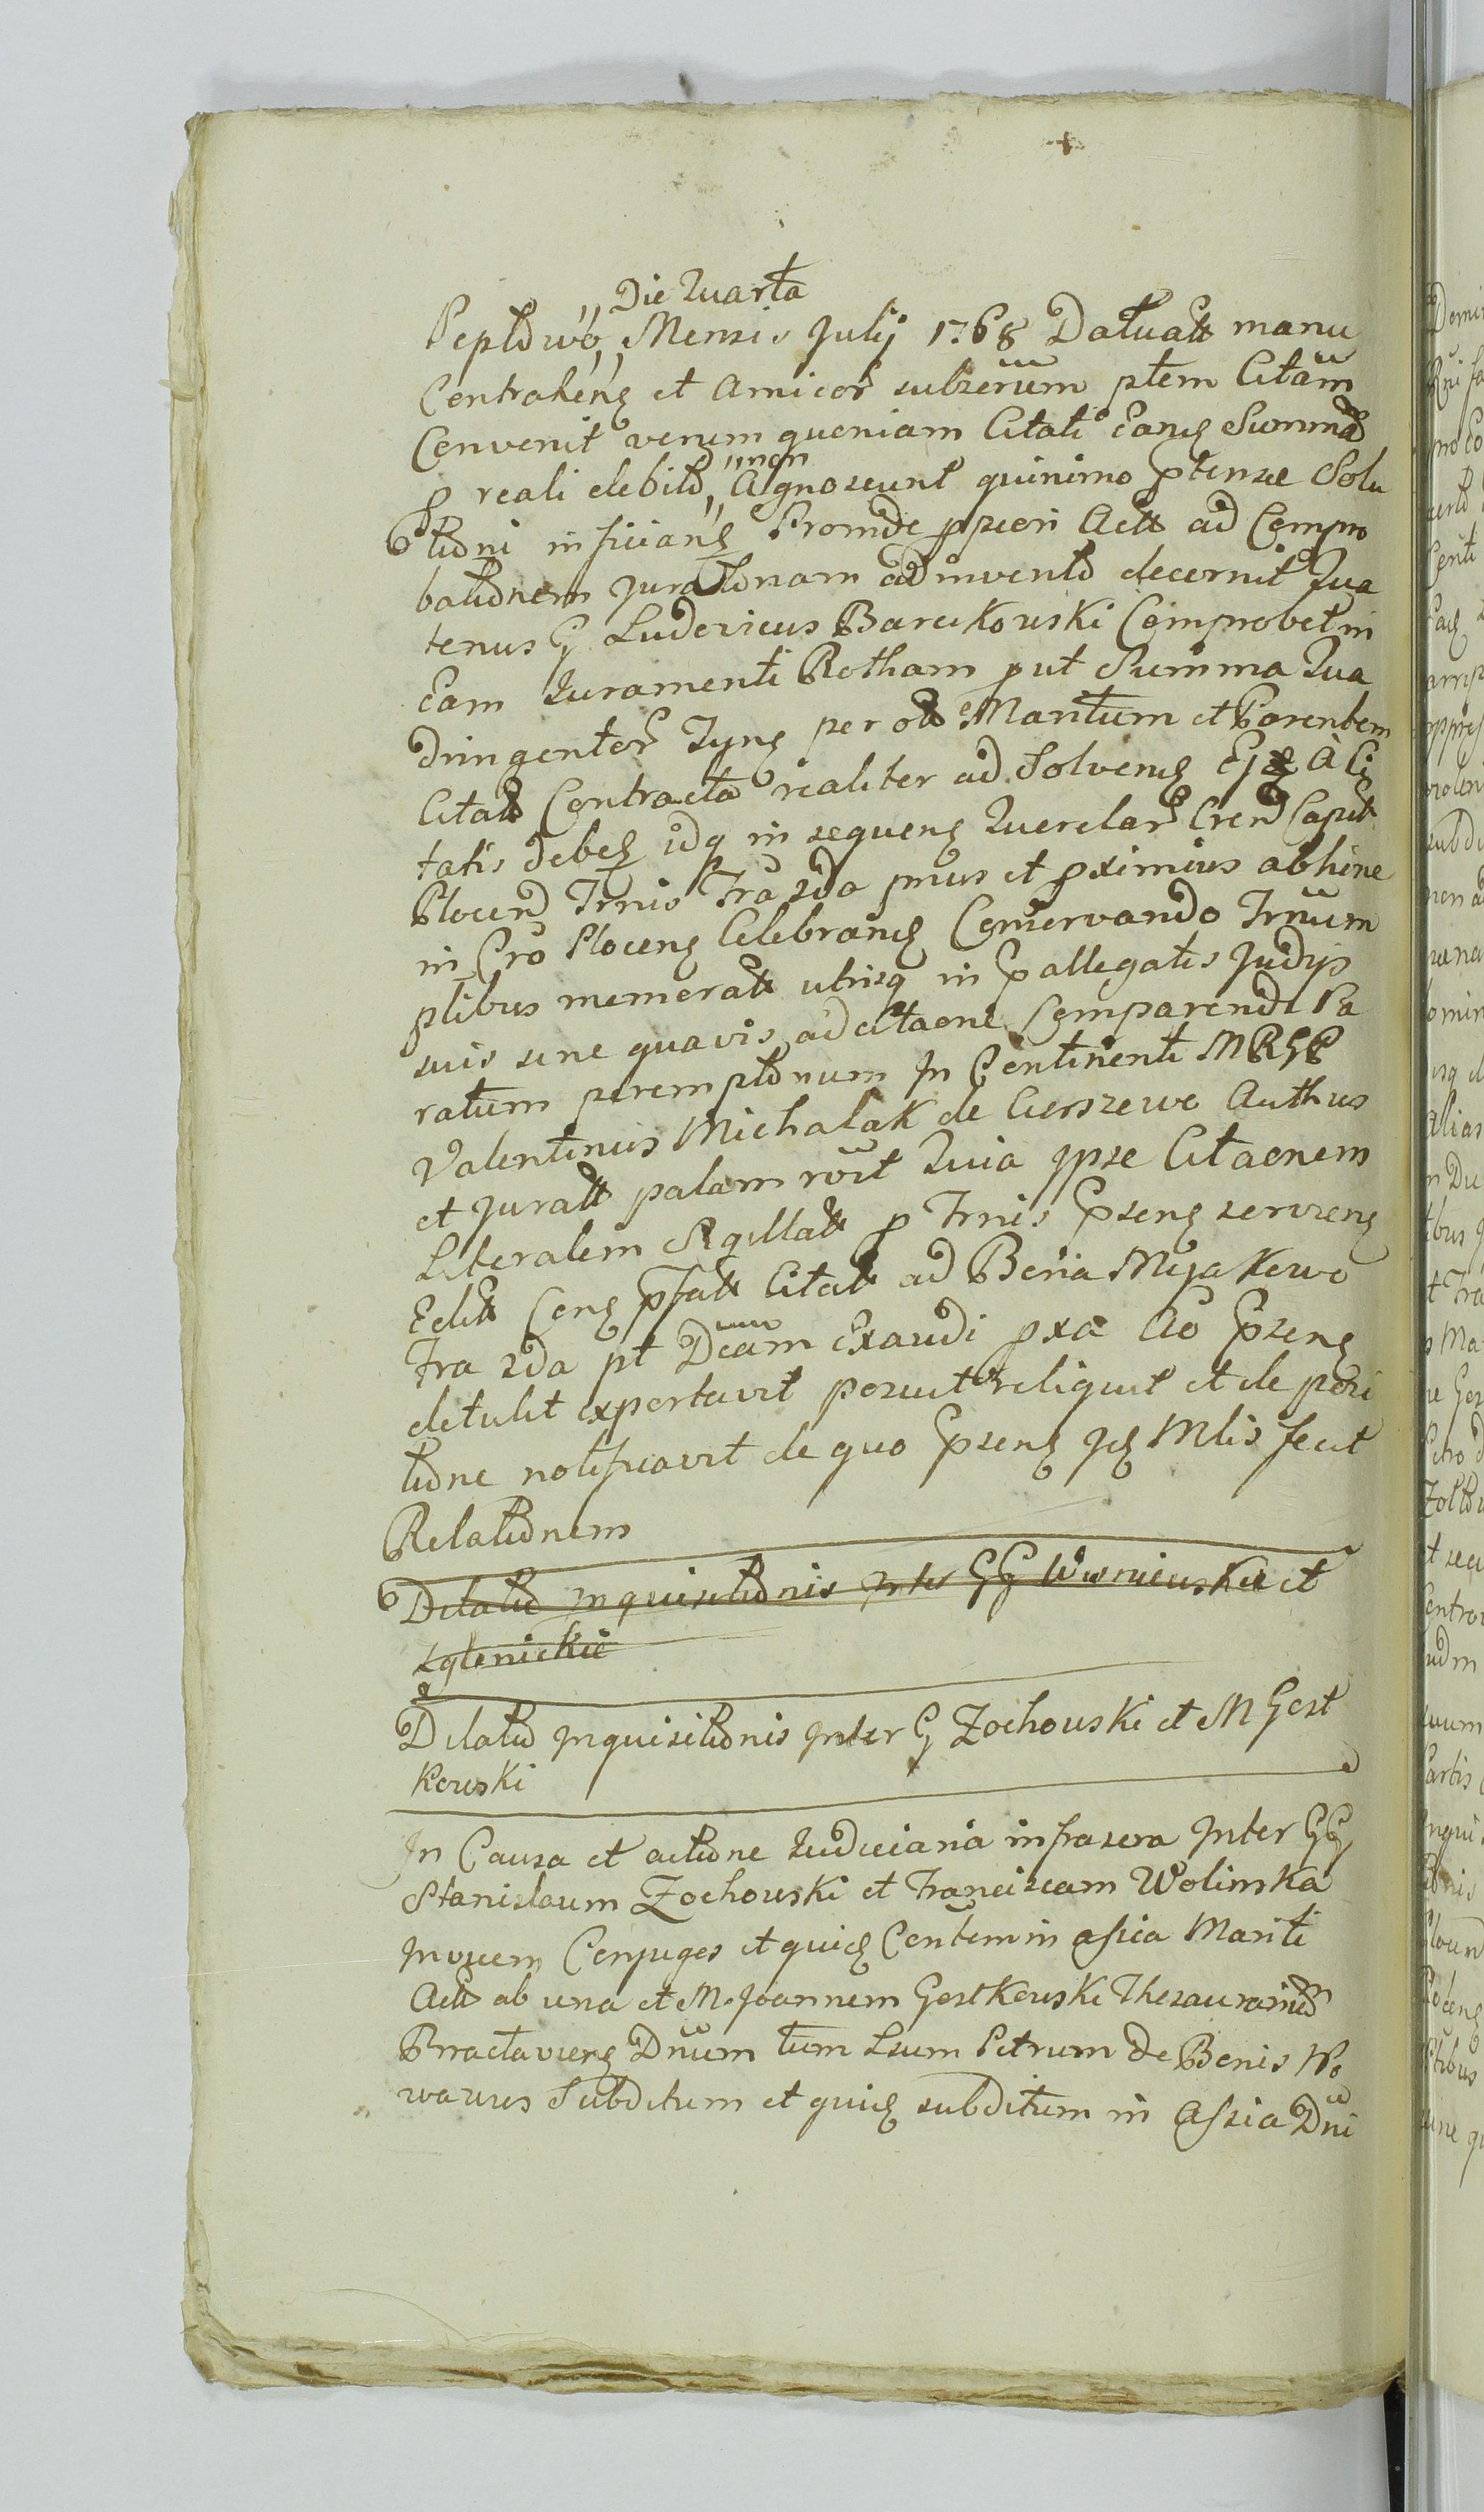 Die Quarta
Peplowo Mensis Julij 1768 Datuatt manu
Contraheng et Amicor subserium ptem Citam
Convenit verum quoniam Citati Eandg Summa
p reali debito non Agnoscunt quinimo ptensae Solu
tioni inficiang Proinde ppriori Actt ad Compro
bationem juratoriam adinvento decernit Qua
tenus G Ludovicus Barcikowski Comprobet in
Eam Juramenti Rotham put Summa Qua
dringentor Tyng per ott Maritum et Parentem
Citatt Contracta realiter ad Solvendg Ejg A Ci
tatis debetg idq in sequeng Querelar Cren Capit
Plocen Trnis Fra 2da prius et pximius abhinc
in Cro Ploceng Celebrandg Conservando Trnum
ptibus memoratt utrisq in Eppallegatis Judijs
suis sine quavis adcitaone Comparendi Pa
ratum peremptorium In Continenti MRGP
Valentinus Michalak de Cierszewo Authus
et Juratt palam roit Quia ipse Citaonem
Literalem Sigillatt p Trnis Epseng servieng
Editt Cong pfatt Citatt ad Bona Mijakowo
Fra 2da pt Dcam Exaudi pxa Ao Epseng
detulit exportavit posuit reliquit et de posi
tione notificavit de quo Epseng Jdg Mlis fecit
Relationem
Dilatio Inquisitionis Inter GG Wisniewskie et
Zglenickie
Dilatio Inquisitionis Inter G Zochowski et M Gost
kowski
In Causa et actione Judiciaria infrascra Inter GG
Stanislaum Zochowski et Franciscam Wolinska
Invicem Conjuges et quidg Contem in assia Mariti
Actt ab una et M. Joannem Gostkowski Thesaurarium
Bractavieng Dnum tum Lsum Petrum de Bonis No
wawies Subditum et quidg subditum in Assia Dni